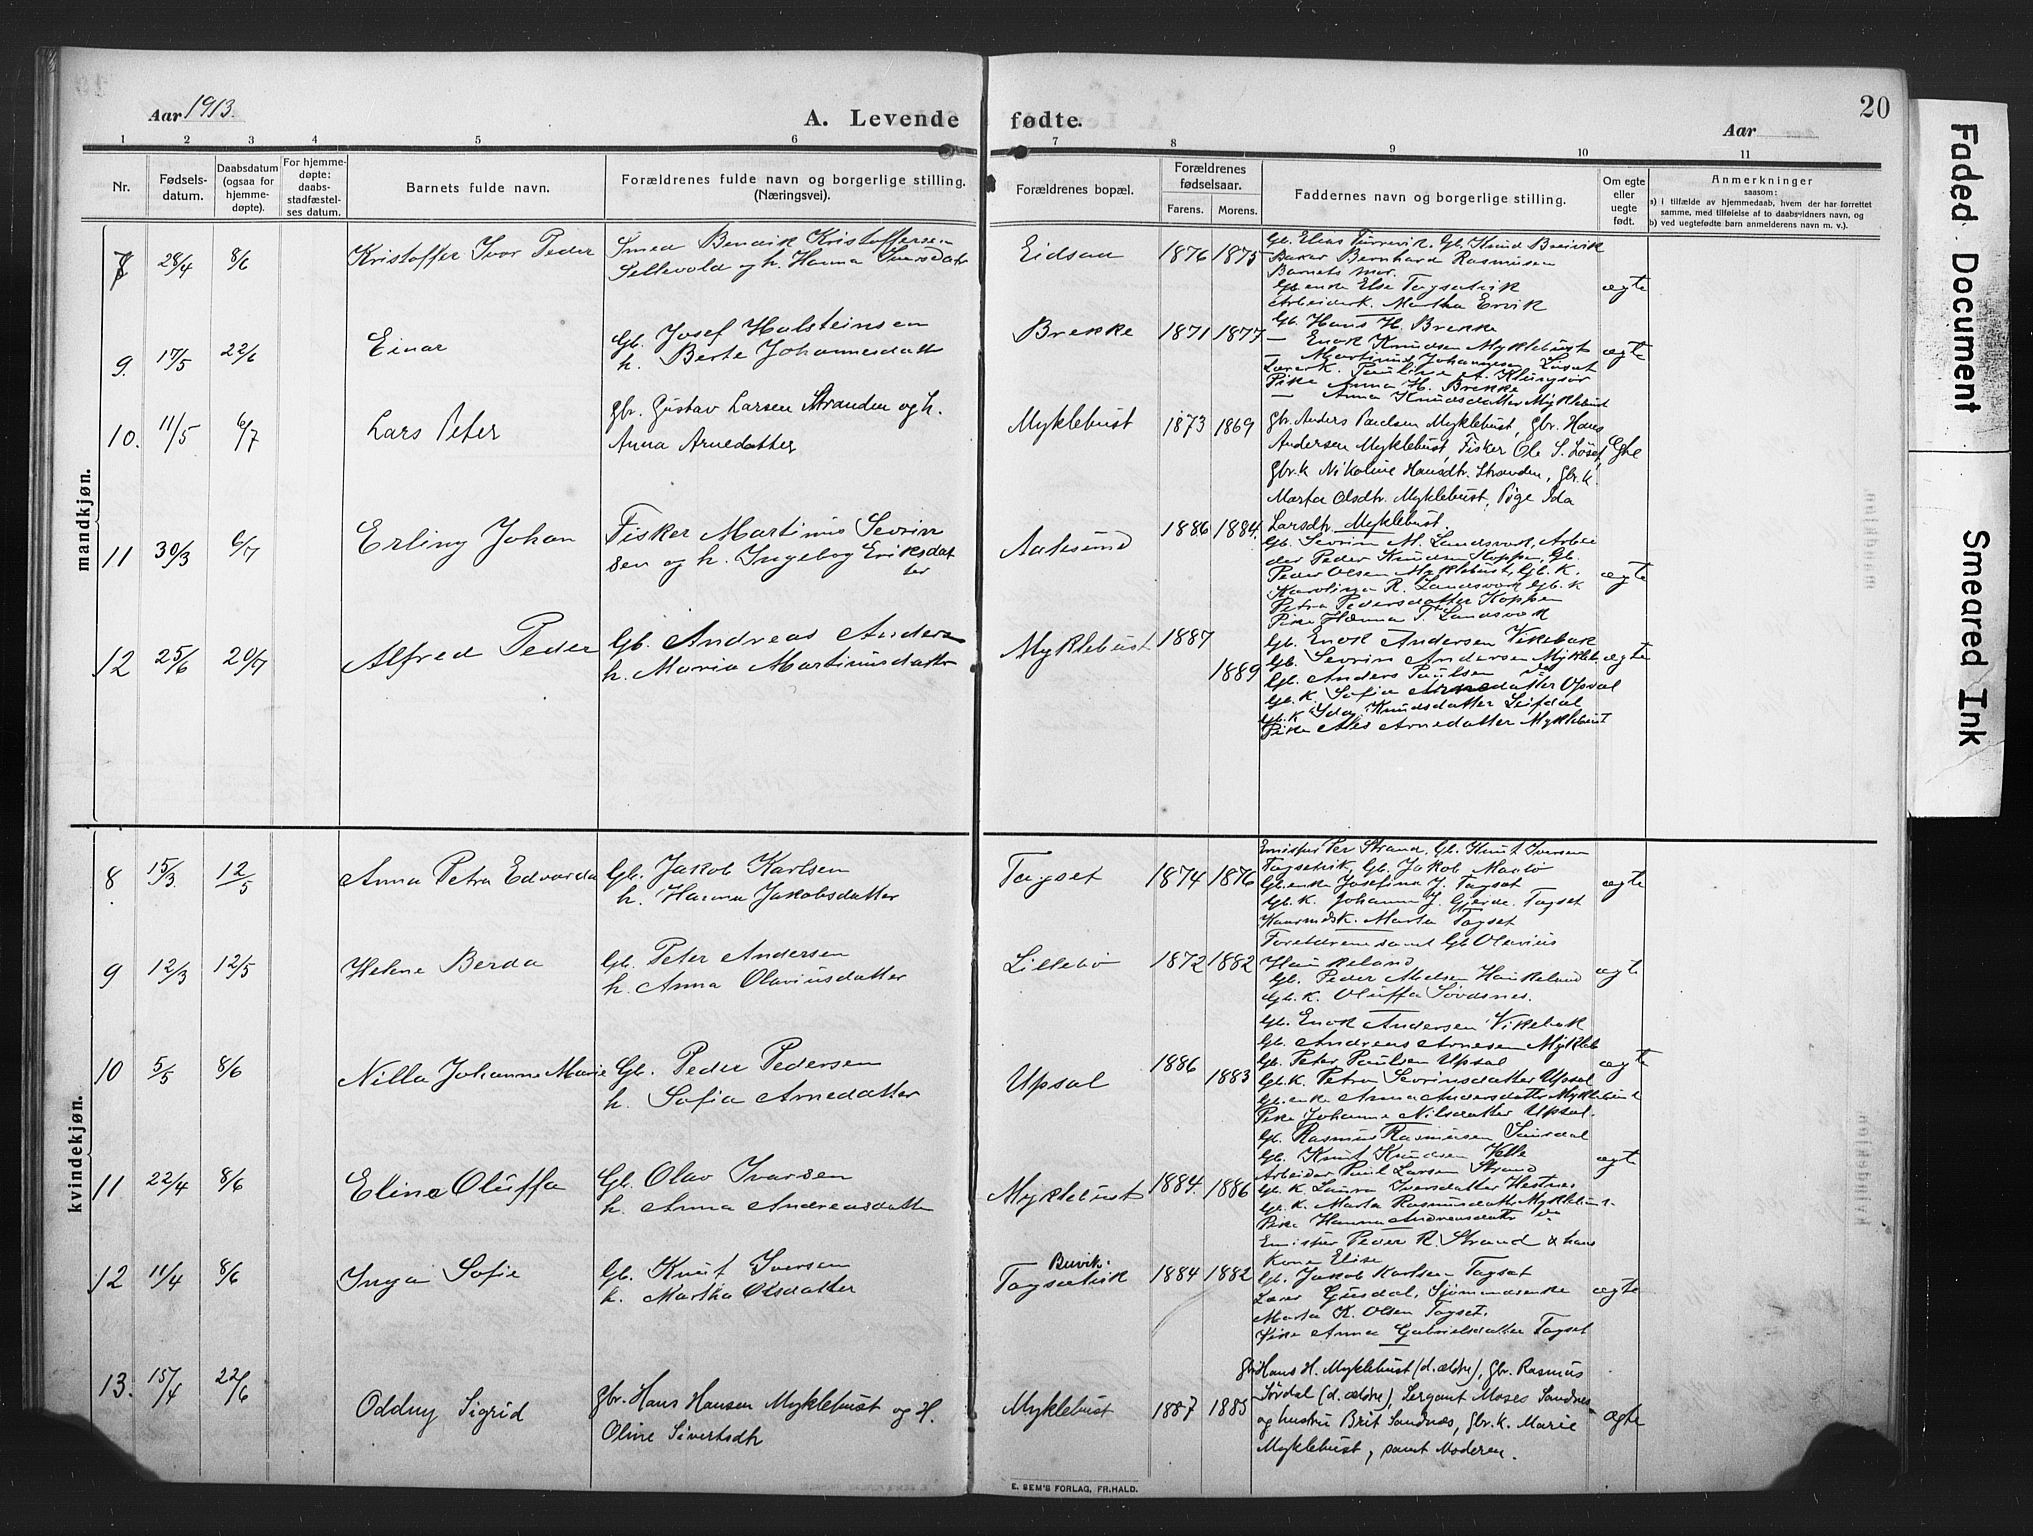 Aar 1913.
A. Levende fødte.
Aar
20
1 2 3 4 5 6 7 8 9 10 11
Nr.
Fødsels-
datum.
Daabsdatum
(ogsaa for
hjemme-
døpte).
For hjemme-
døpte:
daabs-
stadfæstel-
ses datum.
Barnets fulde navn.
Forældrenes fulde navn og borgerlige stilling.
(Næringsvei).
Forældrenes bopæl.
Forældrenes
fødselsaar.
Farens. Morens.
Faddernes navn og borgerlige stilling.
Om egte
eller
uegte
født.
Anmerkninger
saasom:
a) i tilfælde av hjemmedaab, hvem der har forrettet
samme, med tilføielse af to daabsvidners navn, og
b) ved uegtefødte barn anmelderens navn m. v.).
mandkjøn.
28/4 8/6 Kristoffer Ivor Peder
Smed Bendik Kristoffersen
Sellevold og h. Hanna Iversdatr
Eidsaa 1876 1875
Gb. Elias Gb. Knud Breivik
Baker Bernhard Rasmusen
Barnets mor.
Gbenke Else Tagsetvik
Arbeiderk. Martha Ervik
ægte
9. 17/5 22/6 Einar
Gb. Josef Holsteinsen
h. Berte Johannesdatter
Brekke 1871 1877
Gb. Hans H. Brekke
— Enok Knudsen Myklebust
— Martinus Johannesen
Lærerk. Pauline A. Klungsør
Pike Anna H. Brekke
— Anna Knudsdatter Myklebust
ægte
10. 11/5 6/7 Lars Peter
Gbr. Gustav Larsen Stranden og h.
Anna Arnedatter
Myklebust 1873 1869
Gbr. Anders Paulsen Myklebust, Gbr. Hans
Andersen Myklebust, Fisker Ole S. Løset,
Gbr.k Nikoline Hansdtr. Stranden, Gbr.k.
Marta Olsdtr. Myklebust, Pige Ida
Larsdtr. Myklebust.
Egte
11 30/3 6/7 Erling Johan
Fisker Martinus Sevrin
sen og h. Ingebog Eriksdat
ter
Aalesund 1886 1884.
Gb. Sevrin M. Landsvork, Arbei
der Peder Knudsen Koppen, Gb.
Peder Olsen Myklebust, Gb. K.
Karolina R. Landsvork Gb. K
Petra Pedersdatter Koppen
Pike Hanna T. Landsvork
ægte
12 25/6 20/7 Alfred Peder
Gb. Andreas Anders
h. Maria Martinusdatter
Myklebust 1887
1889
Gb. Enok Andersen Vikebak
Gb. Sevrin Andersen Mykleb
Gb. Anders Paulsen do
Gb. K. Sofia Arnedatter Upsal
Gb. K Ida Knudsdatter Leifdal
Pike Arnedatter Myklebust
ægte
kvindekjøn.
8 15/3 12/5 Anna Petra Edvarda
Gb. Jakob Karlsen
h. Hanna Jakobsdatter
Tagset 1874 1876
Emissær Per Strand, Gb. Knut Iversen
Tagsetvik, Gb. Jakob
Gb.enke Josefina J. Tagset
Gb. K. Johanna J. Gjerde. Tagset
Marta Tagset
ægte
9 12/3 12/5 Helene Berda
Gb. Peter Andersen
h. Anna Olaviusdatter
Lillebø 1872 1882
Forældrene samt Gb Olavius
Haukeland
Gb. Peder Madsen Haukeland
Gb. K. Oluffa Søvdsnes.
ægte
10 5/5 8/6 Nilla Johanne Marie
Gb. Peder Pedersen
h. Sofia Arnedatter
Upsal 1886
1883
Gb. Enok Andersen Vikebak
Gb. Andreas Arnesen Mykleb
Gb. Peter Paulsen Upsal
Gb. K. Petra Sevrinsdatter Upsal
Gb.enke Anna Andersdatter Myklebust
Pike Johanna Nilsdatter Upsal.
ægte
11 22/4 8/6 Eline Oluffa
Gb. Olav Ivarsen
h. Anna Andreasdatter
Myklebust 1884. 1886
Gb. Rasmus Rasmusen
Gb. Knut Knudsen Velle
Arbeider Paul Larsen Strand
Gb. K. Laura Iversdatter Hestnes
Gb. K. Marta Rasmusdatter Myklebust
Pike Hanna Andreasdatr do
ægte
12 11/4 8/6 Inga Sofie
Gb. Knut Iversen
h. Martha Olsdatter
Buvik.
Tagsetvik 1884 1882
Emissær Peder R. Strand & hans
Kone Elise
Gb. Jakob Karlsen Tagset
Lærer Gusdal, Sjømandsenke
Marta K. Olsen Tagset.
Pike Anna Gabrielsdatter Tagset
ægte
13. 15/4 22/6 Oddny Sigrid
Gbr. Hans Hansen Myklebust og H.
Oline Sivertsdtr
Myklebust 1887 1885
Gbr Hans H. Myklebust (d. ældre), Gbr. Rasmus
Sørdal (d. ældre), Sergant Moses Sandnes
og hustru Brit Sandnæs, Gbr. k. Marie
Myklebust, samt Moderen.
ægte
E. SEM'S FORLAG, FR.HALD.
Faded Document
Smeared Ink